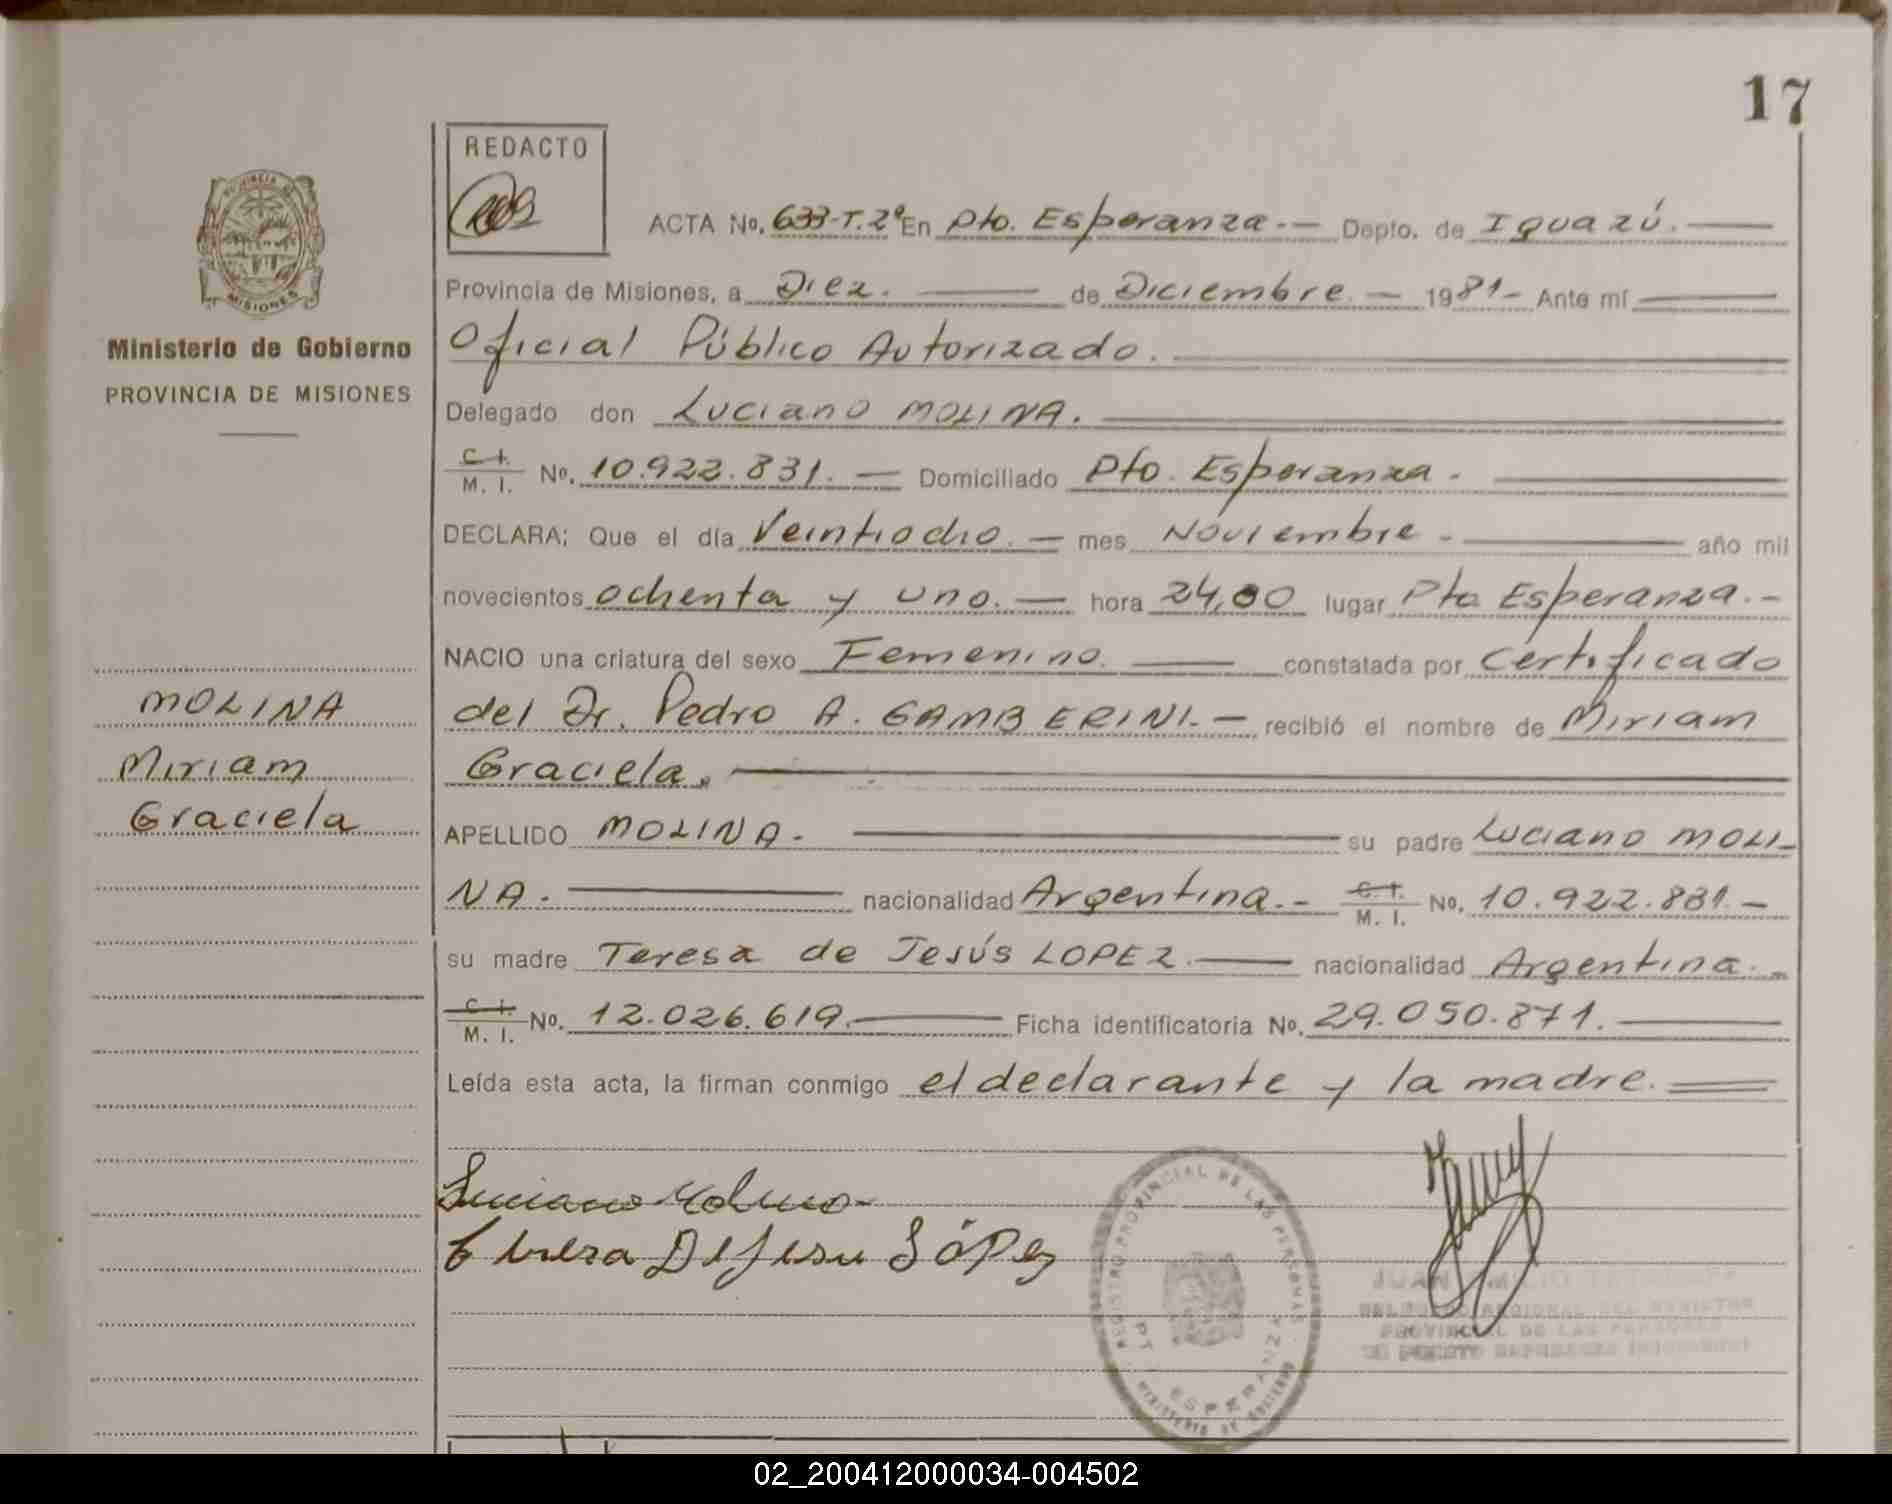 17
REDACTO
ACTA No. 633-T.2º En Pto. Esperanza.- Depto. de Iguazú.
Provincia de Misiones, a Diez. de Diciembre.- 1981- Ante mí
Oficial Público Autorizado.
Delegado don Luciano MOLINA.
C. I.
M. I. No. 10.922.831.- Domiciliado Pto. Esperanza.
DECLARA; Que el día Veintiocho.- mes Noviembre.- año mil
novecientos ochenta y uno.- hora 24,00 lugar Pto Esperanza.-
NACIO una criatura del sexo Femenino. constatada por Certificado
del Dr. Pedro A. GAMBERINI.- recibió el nombre de Miriam
Graciela.
APELLIDO MOLINA. su padre Luciano MOLI-
NA. nacionalidad Argentina.- C. I.
M. I. No. 10.922.831.-
su madre Teresa de Jesús LOPEZ. nacionalidad Argentina.
C. I.
M. I. No. 12.026.619. Ficha identificatoria No. 29.050.871.
Leída esta acta, la firman conmigo el declarante y la madre.
Luciano Molina
Teresa De Jesu López
PROVINCIA DE
MISIONES
Ministerio de Gobierno
PROVINCIA DE MISIONES
MOLINA
Miriam
Graciela
REGISTRO PROVINCIAL DE LAS PERSONAS
PT. ESPERANZA
MINISTERIO DE GOBIERNO
JUAN
DELEGADO REGIONAL DEL REGISTRO
PROVINCIAL DE LAS PERSONAS
02_200412000034-004502